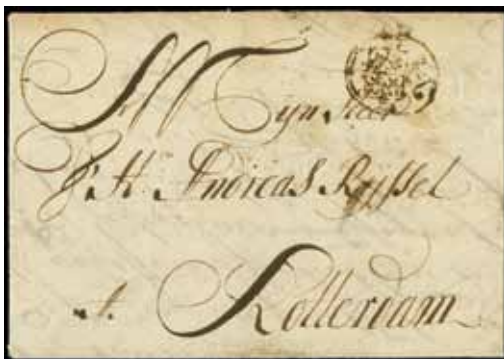 Myn Heer
d'H. Andreas Ryssel
Rotterdam